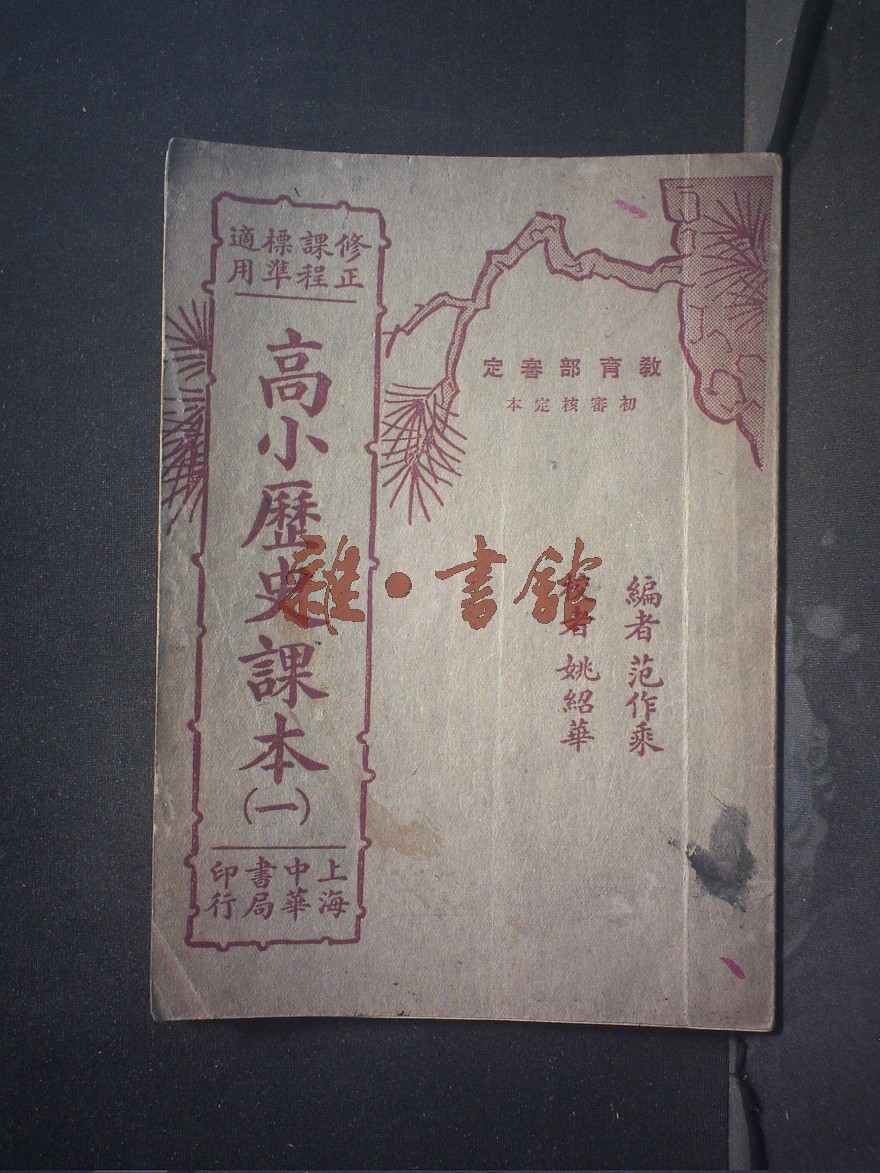 教育部審定
初審核定本
編者 范作乘
校者 姚紹華
修正
課程
標準
適用
高小歷史課本
(一)
上海
中華
書局
印行
雜·書館